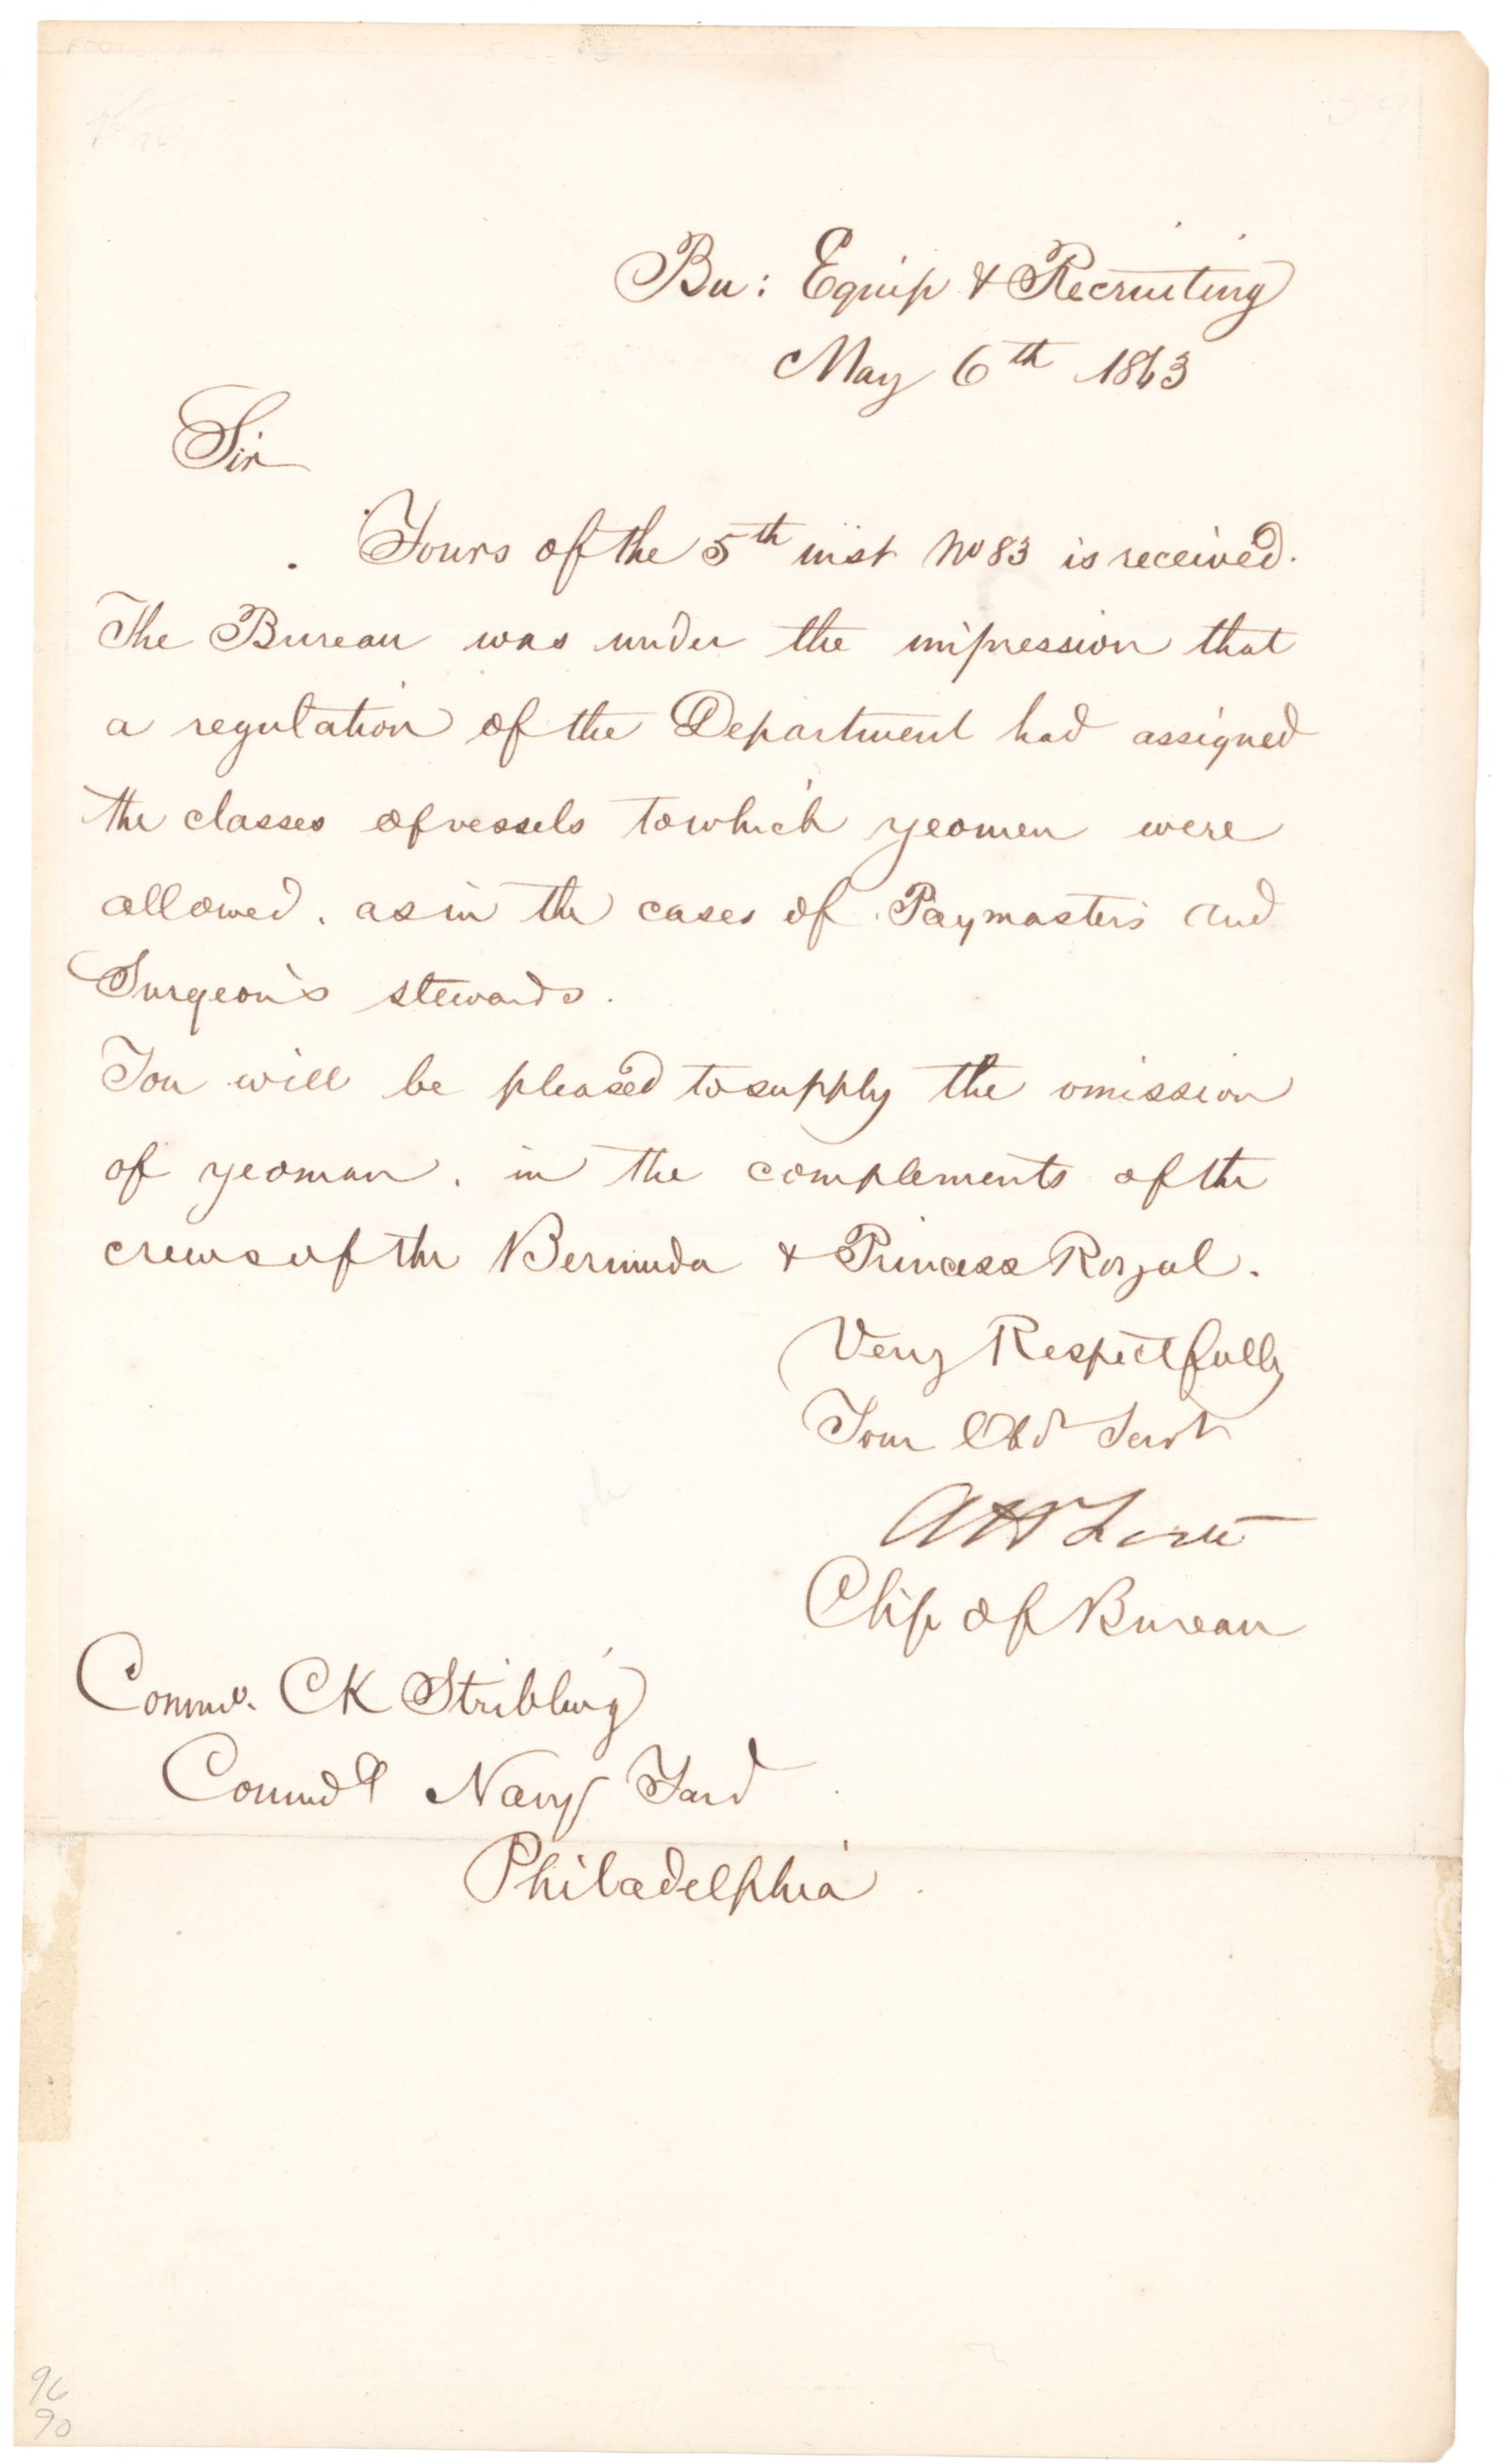 Bu: Equip & Recruiting
May 6th 1863
Sir
Yours of the 5th inst No 83 is received.
The Bureau was under the impression that
a regulation of the Department had assigned
the classes of vessels to which yeomen were
allowed. as in the cases of Paymasters and
Surgeon's stewards.
You will be pleased to supply the omission
of yeoman. in the complements of the
crews of the Bermuda & Princess Royal.
Very Respectfully
Your Obd Servt
A H Foote
Chf of Bureau
Commo. C K Stribling
Commdt Navy Yard
Philadelphia
96
90